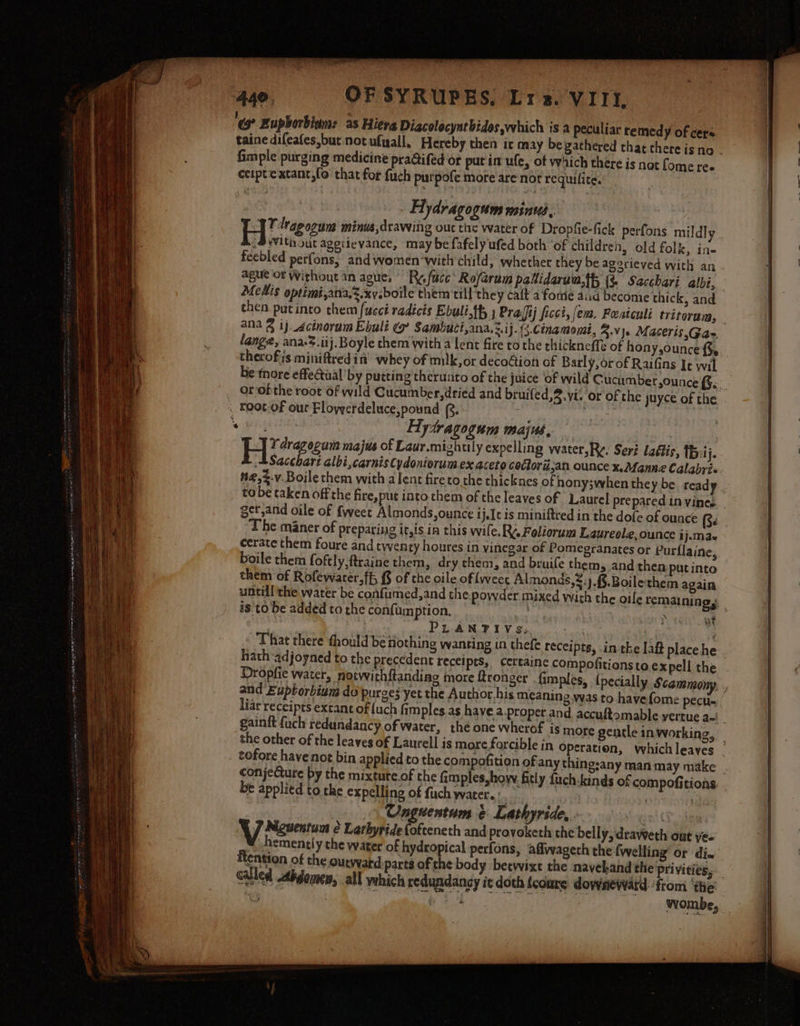 440 OF SYRUPES, LIB. VIII,
& Euphorbiums as Hiera Diacolocynthidos, which is a peculiar remedy of cer-
taine diseases, but not usuall. Hereby then it may be gathered that there is no
simple purging medicine practised or put in use, of which there is not some re-
ceipt extant, so that for such purpose more are not requisite.
Hydragogum minus,
HYdragogum minus, drawing out the water of Dropsie-sick persons mildly
without aggrievance, may be safely used both of children, old folk, in-
feebled persons, and women with child, whether they be aggrieved with an
ague or without an ague. ℞. succ Rosarum pallidarum, ℔ ß. Sacchari albi,
Mellis optimi, ana, ℥. xv. boile them till they cast a fome and become thick, and
then put into them succi radicis Ebuli, ℔ j Prassij sicci, sem. Fœniculi tritorum,
ana ℥ ij Acinorum Ebuli & Sambuci, ana. ℥. ij. ß. Cinamomi, ℥. vj. Maceris, Ga-
langæ, ana. ℥. iij. Boyle them with a lent fire to the thicknesse of hony, ounce ß,
therof is ministred in whey of milk, or decoction of Barly, or of Raisins It wil
be more effectual by putting therunto of the juice of wild Cucumber, ounce ß.
or of the root of wild Cucumber, dried and bruised, ℥. vi. or of the juyce of the
root of our Flowerdeluce, pound ß.
Hydragogum majus,
HYdragogum majus of Laur. mightily expelling water, ℞. Seri lactis, ℔ ij.
Sacchari albi, carnis Cydoniorum ex aceto coctorū, an ounce x. Mannæ Calabri-
næ, ℥. v. Boile them with a lent fire to the thicknes of hony; when they be ready
to be taken off the fire, put into them of the leaves of Laurel prepared in vine-
ger, and oile of sweet Almonds, ounce ij. It is ministred in the dose of ounce ß.
The māner of preparing it, is in this wise. ℞. Foliorum Laureolæ, ounce ij. ma-
cerate them foure and twenty houres in vinegar of Pomegranates or Purslaine,
boile them softly, straine them, dry them, and bruise them, and then put into
them of Rosewater, ℔ ß of the oile of sweet Almonds, ℥. j. ß. Boile them again
untill the water be consumed, and the powder mixed with the oile remaining;
is to be added to the consumption.
PLANTIVS.
That there should be nothing wanting in these receipts, in the last place he
hath adjoyned to the precedent receipts, certaine compositions to expell the
Dropsie water, notwithstanding more stronger simples, specially Scammony
and Euphorbium do purge; yet the Author his meaning was to have some pecu-
liar receipts extant of such simples as have a proper and accustomable vertue a-
gainst such redundancy of water, the one wherof is more gentle in working,
the other of the leaves of Laurell is more forcible in operation, which leaves
tofore have not bin applied to the composition of any thing; any man may make
conjecture by the mixture of the simples, how fitly such kinds of compositions
be applied to the expelling of such water.
Unguentum è Lathyride,
VNguentum è Lathyride softeneth and provoketh the belly, draweth out ve-
hemently the water of hydropical persons, asswageth the swelling or di-
stention of the outward parts of the body betwixt the navel and the privities,
called Abdomen, all which redundancy it doth scoure downeward from the
wombe,